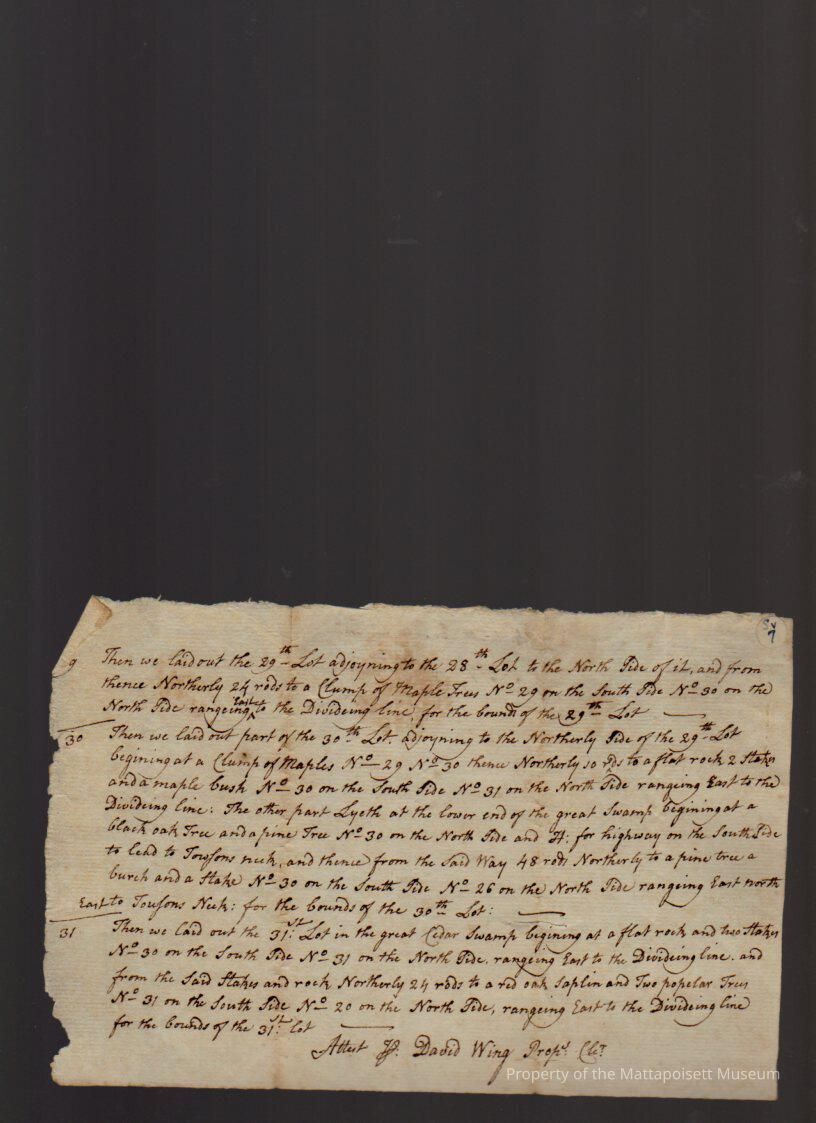 9 Then we laid out the 29th Lot adjoyning to the 28th Lot to the North Side of it, and from
thence Northerly 24 rods to a Clump of Maple Trees No 29 on the South Side No 30 on the
North Side rangeing East to the Divideing line, for the bounds of the 29th Lot
30 Then we laid out part of the 30th Lot. adjoyning to the Northerly Side of the 29th Lot
begining at a Clump of Maples No 29 No 30 thence Northerly 10 rds to a flat rock 2 Stakes
and a maple bush No 30 on the South Side No 31 on the North Side rangeing East to the
Divideing line: The other part Lyeth at the lower end of the great Swamp begining at a
black oak Tree and a pine Tree No 30 on the North Side and H: for highway on the South Side
to lead to Towsons neck, and thence from the Said Way 48 rods Northerly to a pine tree a
burch and a Stake No 30 on the South Side No 26 on the North Side rangeing East north
East to Towsons Neck: for the bounds of the 30th Lot:
31 Then we laid out the 31st Lot in the great Cedar Swamp begining at a flat rock and two Stakes
No 30 on the South Side No 31 on the North Side, rangeing East to the Divideing line. and
from the Said Stakes and rock Northerly 24 rods to a red oak Saplin and Two popelar Trees
No 31 on the South Side No 20 on the North Side, rangeing East to the Divideing line
for the bounds of the 31st Lot
Attest P. David Wing Proprs Cler
Property of the Mattapoisett Museum